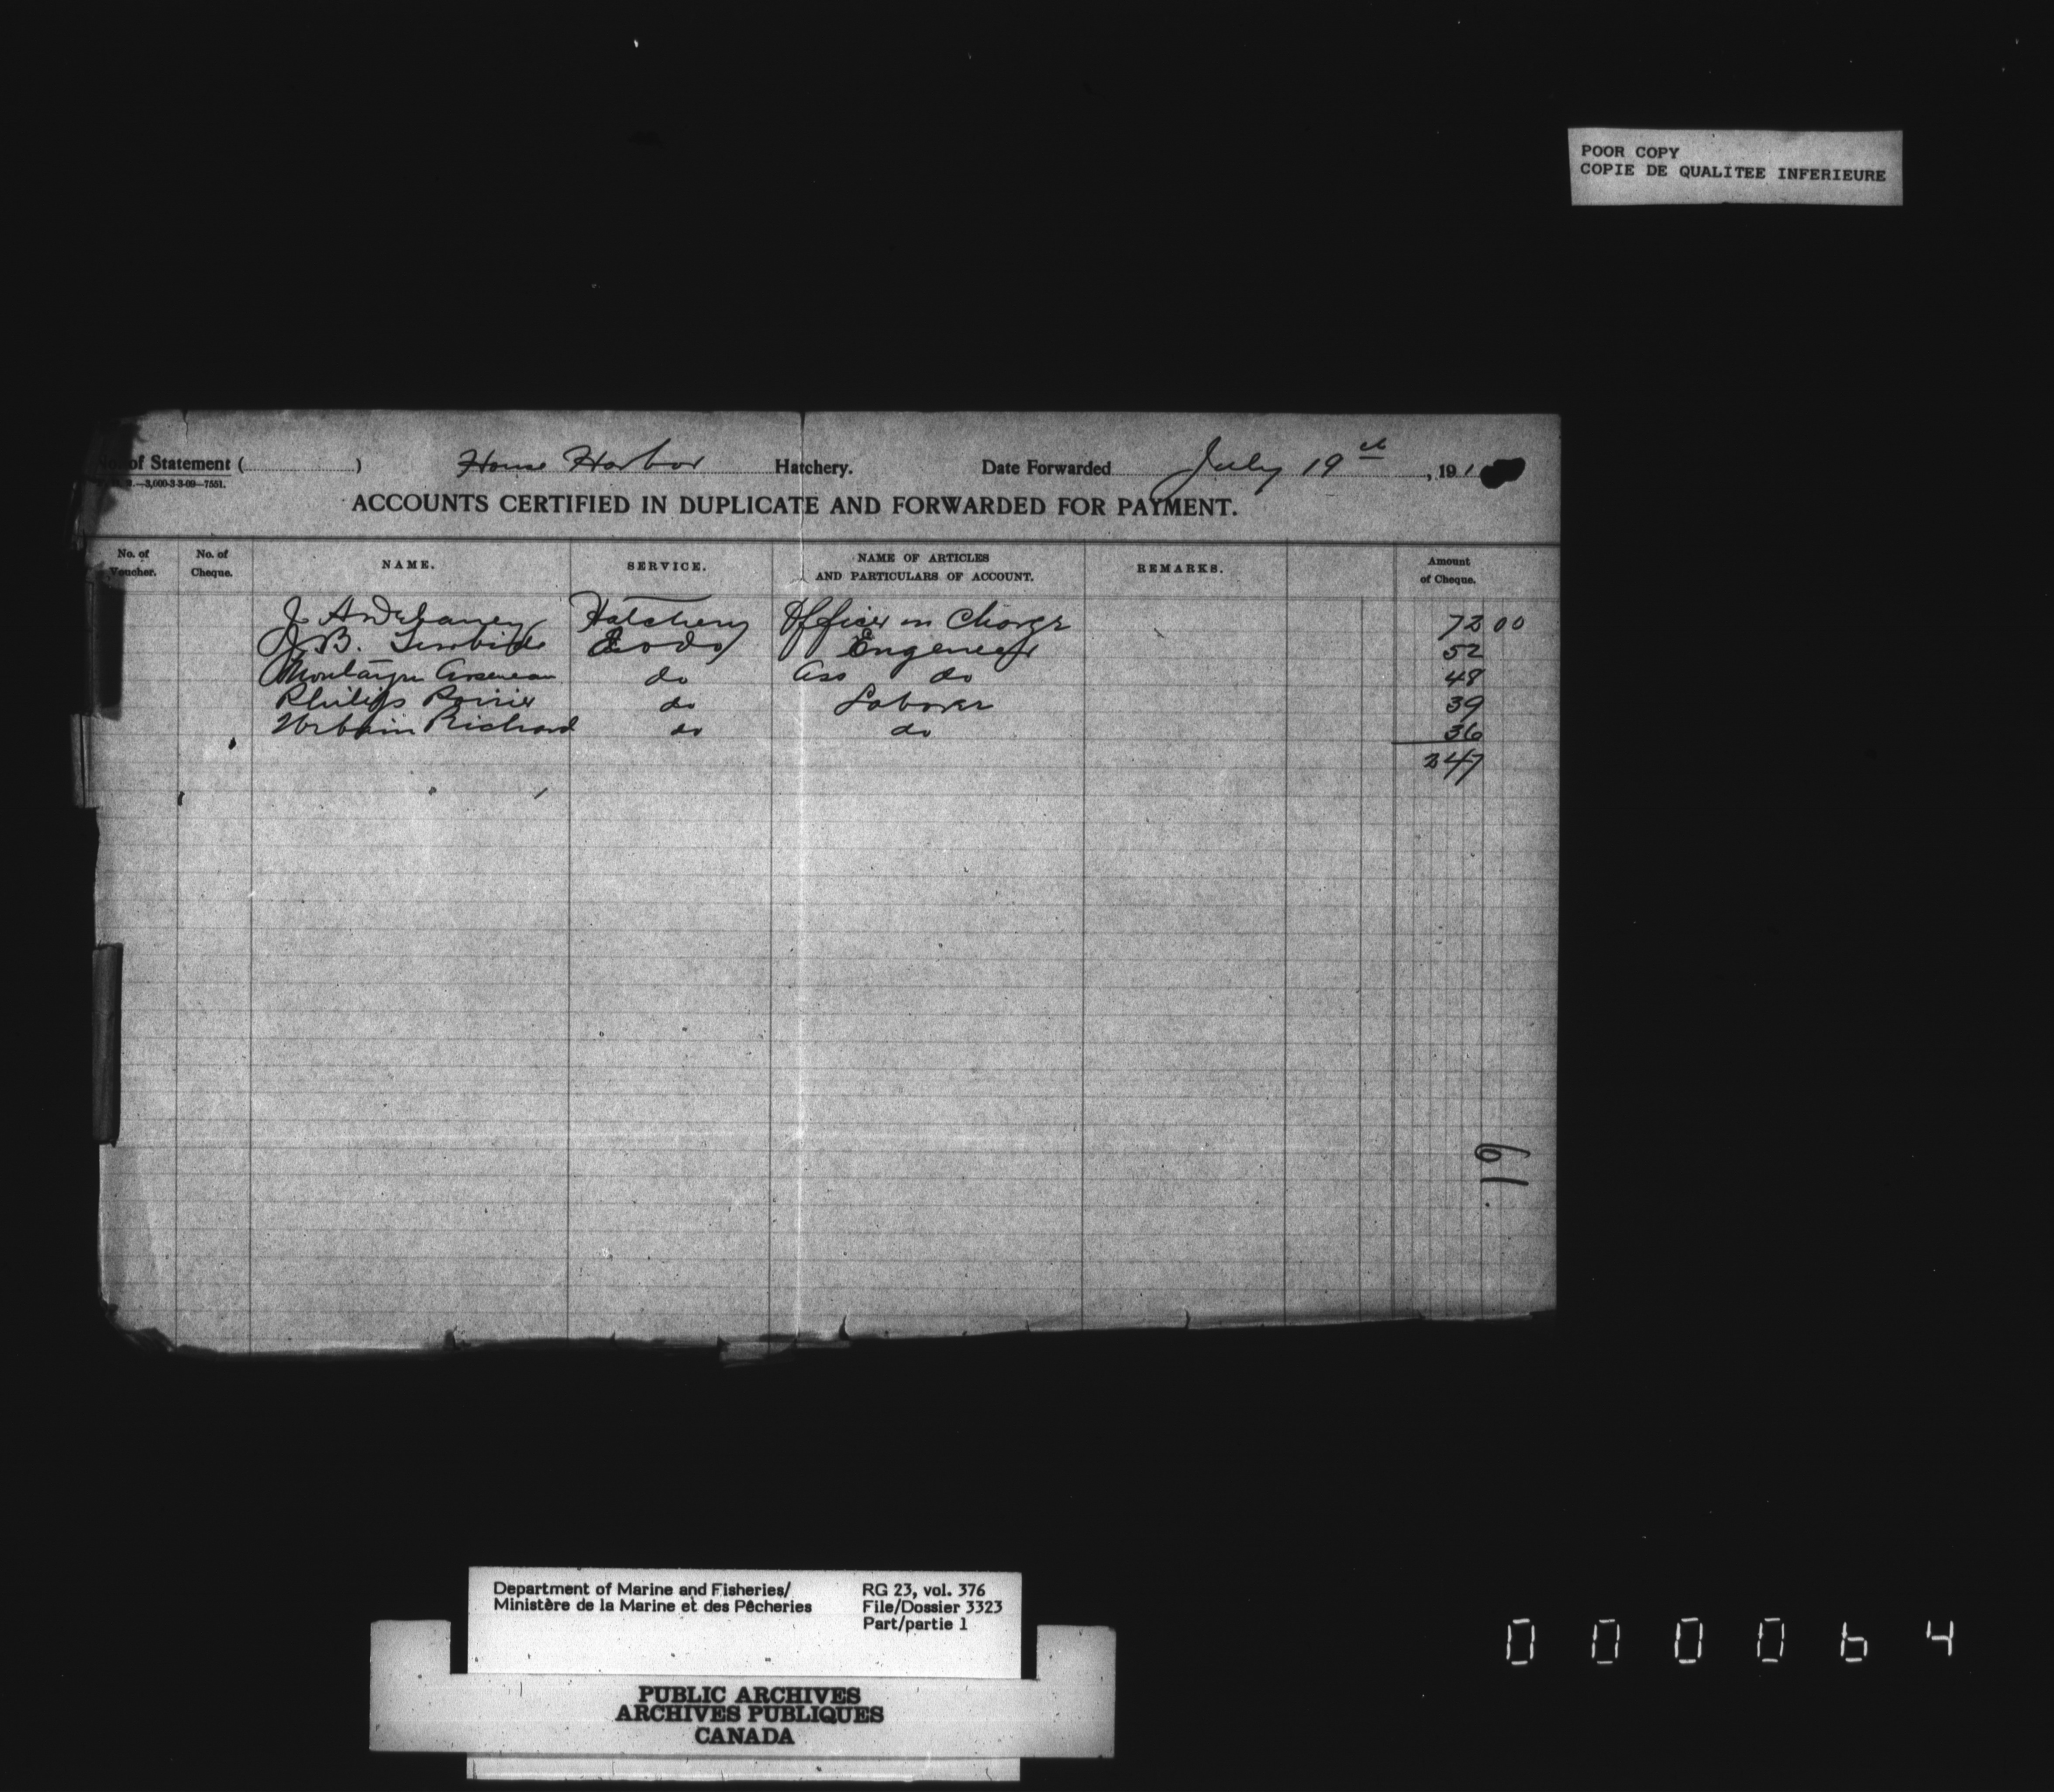 POOR COPY
COPIE DE QUALITEE INFERIEURE
No. of Statement ( ) House Harbor Hatchery. Date Forwarded July 19th, 191
—3,000-3-3-09—7551.
ACCOUNTS CERTIFIED IN DUPLICATE AND FORWARDED FOR PAYMENT.
No. of Voucher. No. of Cheque. NAME. SERVICE. NAME OF ARTICLES AND PARTICULARS OF ACCOUNT. REMARKS. Amount of Cheque.
J. A. Delaney Hatchery Officer in Charge 72 00
J. B. do Engeneer 52
Arseneau do Ass do 48
Philips Poirier do Laborer 39
Urbain Richard do do 36
247
19
Department of Marine and Fisheries/
Ministère de la Marine et des Pêcheries
RG 23, vol. 376
File/Dossier 3323
Part/partie 1
PUBLIC ARCHIVES
ARCHIVES PUBLIQUES
CANADA
000064